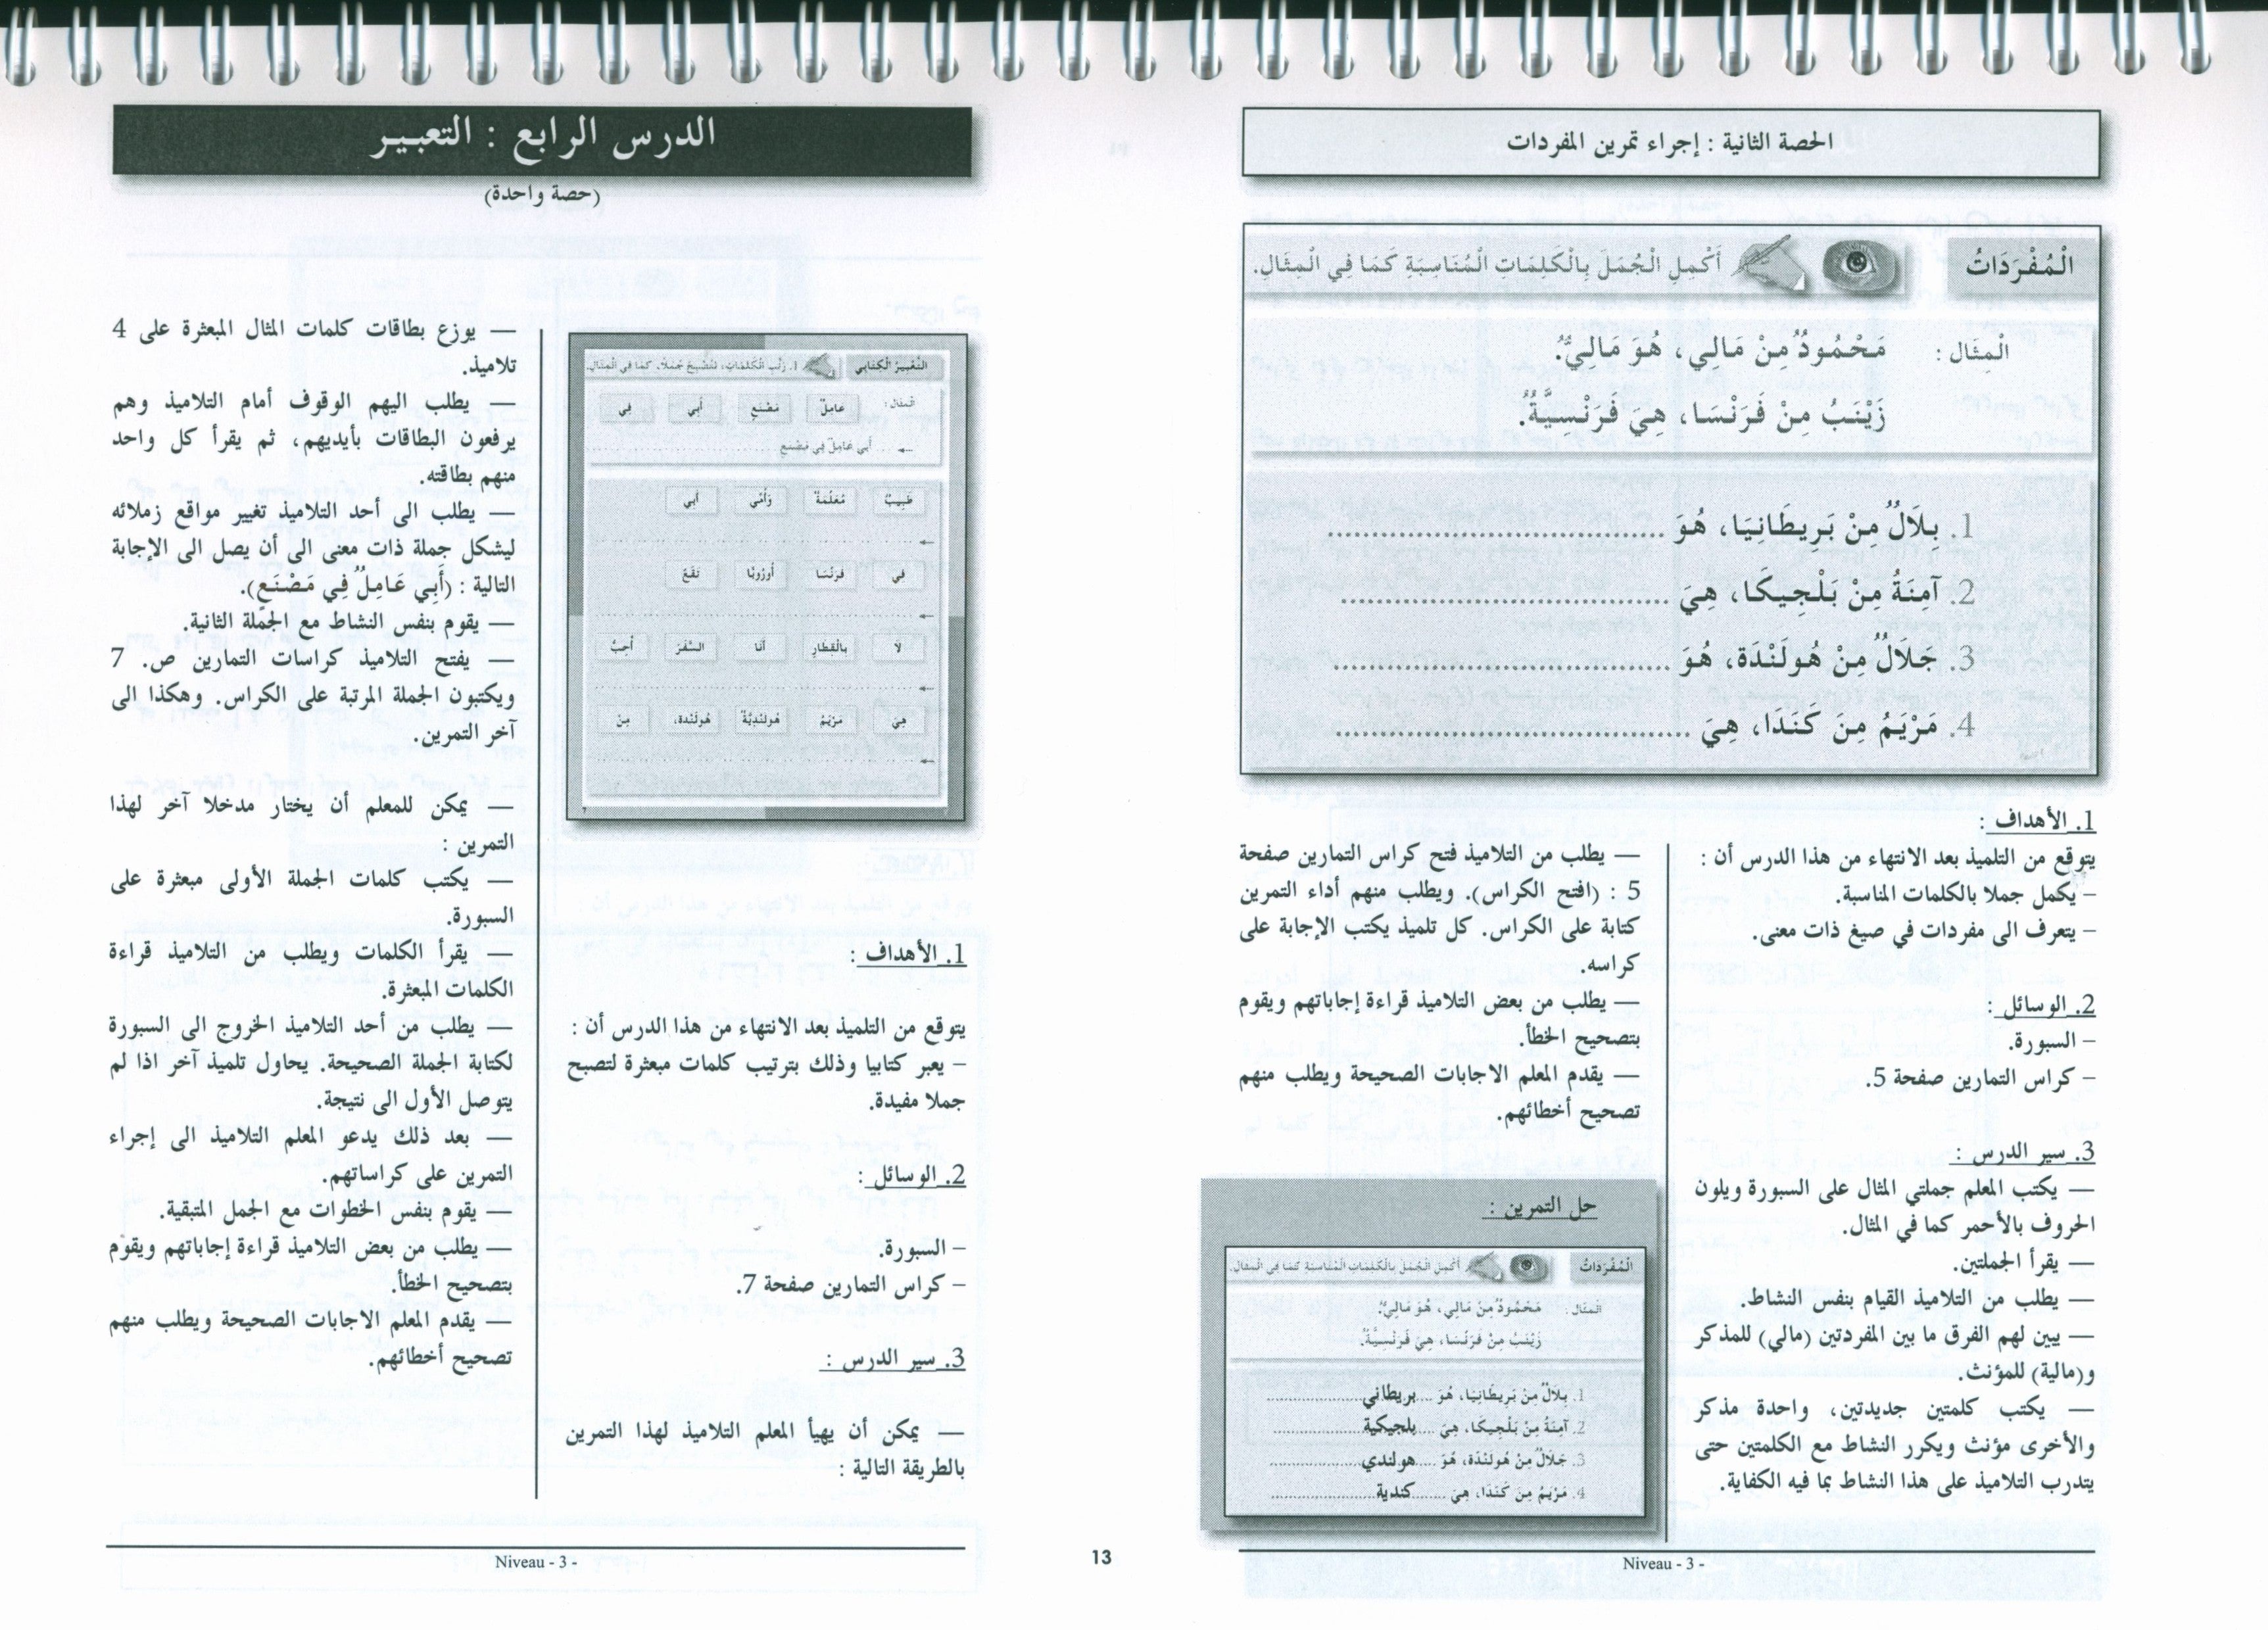 الحصة الثانية : إجراء تمرين المفردات
الْمُفْرَدَاتُ
أَكْمِلِ الْجُمَلَ بِالْكَلِمَاتِ الْمُنَاسِبَةِ كَمَا فِي الْمِثَالِ.
الْمِثَال : مَحْمُودٌ مِنْ مَالِي، هُوَ مَالِيٌّ.
زَيْنَبُ مِنْ فَرَنْسَا، هِيَ فَرَنْسِيَّةٌ.
1. بِلَالٌ مِنْ بَرِيطَانِيَا، هُوَ ......................................
2. آمِنَةُ مِنْ بَلْجِيكَا، هِيَ ......................................
3. جَلَالٌ مِنْ هُولَنْدَة، هُوَ ......................................
4. مَرْيَمُ مِنَ كَنَدَا، هِيَ ......................................
1. الأهداف :
يتوقع من التلميذ بعد الانتهاء من هذا الدرس أن :
– يكمل جملا بالكلمات المناسبة.
– يتعرف الى مفردات في صيغ ذات معنى.
2. الوسائل :
– السبورة.
– كراس التمارين صفحة 5.
3. سير الدرس :
— يكتب المعلم جملتي المثال على السبورة ويلون
الحروف بالأحمر كما في المثال.
— يقرأ الجملتين.
— يطلب من التلاميذ القيام بنفس النشاط.
— يبين لهم الفرق ما بين المفردتين (مالي) للمذكر
و(مالية) للمؤنث.
— يكتب كلمتين جديدتين، واحدة مذكر
والأخرى مؤنث ويكرر النشاط مع الكلمتين حتى
يتدرب التلاميذ على هذا النشاط بما فيه الكفاية.
— يطلب من التلاميذ فتح كراس التمارين صفحة
5 : (افتح الكراس). ويطلب منهم أداء التمرين
كتابة على الكراس. كل تلميذ يكتب الإجابة على
كراسه.
— يطلب من بعض التلاميذ قراءة إجاباتهم ويقوم
بتصحيح الخطأ.
— يقدم المعلم الاجابات الصحيحة ويطلب منهم
تصحيح أخطائهم.
حل التمرين :
الْمُفْرَدَاتُ
أَكْمِلِ الْجُمَلَ بِالْكَلِمَاتِ الْمُنَاسِبَةِ كَمَا فِي الْمِثَالِ.
الْمِثَال : مَحْمُودٌ مِنْ مَالِي، هُوَ مَالِيٌّ.
زَيْنَبُ مِنْ فَرَنْسَا، هِيَ فَرَنْسِيَّةٌ.
1. بِلَالٌ مِنْ بَرِيطَانِيَا، هُوَ ....بريطاني....................
2. آمِنَةُ مِنْ بَلْجِيكَا، هِيَ ....بلجيكية....................
3. جَلَالٌ مِنْ هُولَنْدَة، هُوَ ....هولندي....................
4. مَرْيَمُ مِنَ كَنَدَا، هِيَ ....كندية....................
Niveau - 3 -
13
الدرس الرابع : التعبير
(حصة واحدة)
التَّعْبِيرُ الْكِتَابِي
1. رَتِّبِ الْكَلِمَاتِ، لِتُصْبِحَ جُمَلًا، كَمَا فِي الْمِثَالِ.
الْمِثَال : عَامِلٌ مَصْنَعٍ أَبِي فِي
← ....أَبِي عَامِلٌ فِي مَصْنَعٍ....................
طَبِيبٌ مُعَلِّمَةٌ وَأُمِّي أَبِي
← ........................................
فِي فَرَنْسَا أُورُوبَّا تَقَعُ
← ........................................
لَا بِالْقِطَارِ أَنَا السَّفَرَ أُحِبُّ
← ........................................
هِيَ مَرْيَمُ هُولَنْدِيَّةٌ هُولَنْدَة، مِنْ
← ........................................
1. الأهداف :
يتوقع من التلميذ بعد الانتهاء من هذا الدرس أن :
– يعبر كتابيا وذلك بترتيب كلمات مبعثرة لتصبح
جملا مفيدة.
2. الوسائل :
– السبورة.
– كراس التمارين صفحة 7.
3. سير الدرس :
— يمكن أن يهيأ المعلم التلاميذ لهذا التمرين
بالطريقة التالية :
— يوزع بطاقات كلمات المثال المبعثرة على 4
تلاميذ.
— يطلب اليهم الوقوف أمام التلاميذ وهم
يرفعون البطاقات بأيديهم، ثم يقرأ كل واحد
منهم بطاقته.
— يطلب الى أحد التلاميذ تغيير مواقع زملائه
ليشكل جملة ذات معنى الى أن يصل الى الإجابة
التالية : (أَبِي عَامِلٌ فِي مَصْنَعٍ).
— يقوم بنفس النشاط مع الجملة الثانية.
— يفتح التلاميذ كراسات التمارين ص. 7
ويكتبون الجملة المرتبة على الكراس. وهكذا الى
آخر التمرين.
— يمكن للمعلم أن يختار مدخلا آخر لهذا
التمرين :
— يكتب كلمات الجملة الأولى مبعثرة على
السبورة.
— يقرأ الكلمات ويطلب من التلاميذ قراءة
الكلمات المبعثرة.
— يطلب من أحد التلاميذ الخروج الى السبورة
لكتابة الجملة الصحيحة. يحاول تلميذ آخر اذا لم
يتوصل الأول الى نتيجة.
— بعد ذلك يدعو المعلم التلاميذ الى إجراء
التمرين على كراساتهم.
— يقوم بنفس الخطوات مع الجمل المتبقية.
— يطلب من بعض التلاميذ قراءة إجاباتهم ويقوم
بتصحيح الخطأ.
— يقدم المعلم الاجابات الصحيحة ويطلب منهم
تصحيح أخطائهم.
Niveau - 3 -